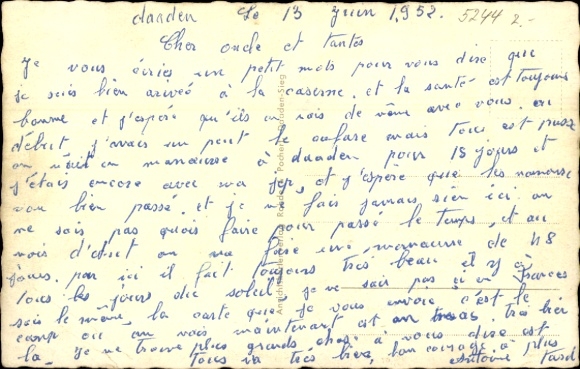 daaden Le 13 Juin 1952. 5244 2.-
Cher oncle et tantes
Je vous écries un petit mots pour vous dire que
je suis bien arrivé à la caserne. et la santé est toujours
bonne et j'espère qu'ils en vois de même avec vous. au
début j'avais un peut le cafare mais tous est passé
on était en manœuvre à daaden pour 15 jours et
j'étais encore avec ma jep, et j'espère que les manœuvre
von bien passé. et je ne fais jamais rien ici on
ne sais pas quois faire pour passé le temps, et au
mois d'août on va faire une manœuvre de 48
jours. par ici il fait toujours très beau il y à
tous les jours du soleil, je ne sais pas si en Frances
sais le même, la carte que je vous envoie c'est le
camp ou on vais maintenant est on très bien
la. Je ne trouve plus grands chose à vous dire est
tous va très bien, bon courage à plus
tard
Antoine